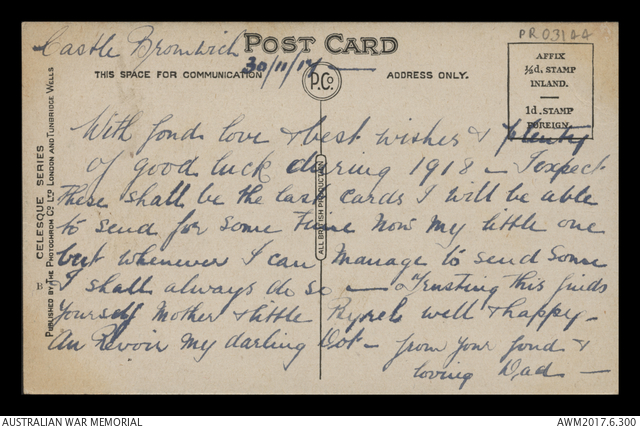 PR03144
Castle Bromwich
30/11/17 —
POST CARD
THIS SPACE FOR COMMUNICATION
P.Co.
ADDRESS ONLY.
AFFIX
½d. STAMP
INLAND.
1d. STAMP
FOREIGN.
With fond love & best wishes & plenty
of good luck during 1918 – I expect
These shall be the last cards I will be able
to send for some time now my little one
but whenever I can manage to send some
I shall always do so — Trusting this finds
Yourself Mother & little well & happy –
Au Revoir my darling Dot – from your fond &
loving Dad —
CELESQUE SERIES
PUBLISHED BY THE PHOTOCHROM CO. LTD LONDON AND TUNBRIDGE WELLS
ALL BRITISH PRODUCTION
B
AUSTRALIAN WAR MEMORIAL
AWM2017.6.300